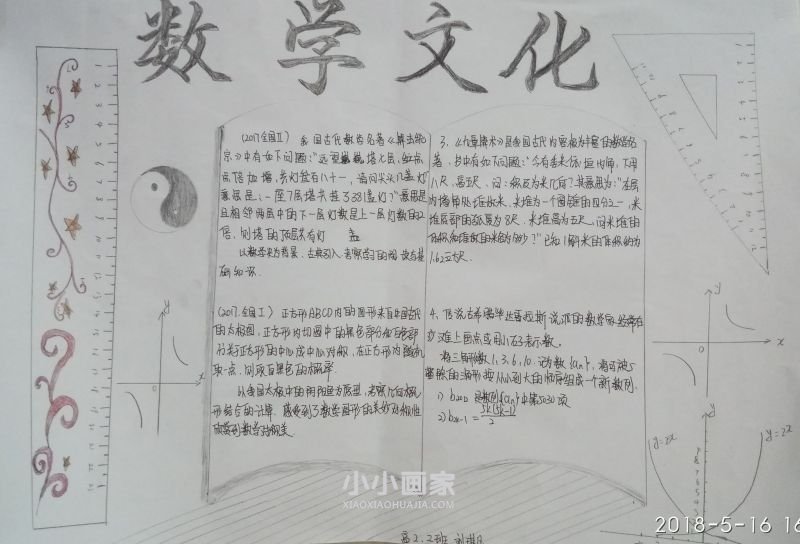 数学文化
(2017.全国Ⅱ) 我国古代数学名著《算法统
宗》中有如下问题:"远望巍巍塔七层,红点
点倍加增,共灯三百八十一,请问尖头几盏灯
意思是:一座7层塔共挂了381盏灯"
且相邻两层中的下一层灯数是上一层灯数的2
倍,则塔的顶层共有灯 盏
(2017.全国Ⅰ) 正方形ABCD内的图形来自中国古代
的太极图,正方形内切圆中的黑色部分和白色部
分关于正方形的中心成中心对称,在正方形内随机
取一点,则取自黑色的概率
3、《九章算术》是我国古代内容极为丰富的数学名
著,书中有如下问题:"今有委米依垣内角,下周
八尺,高五尺,问:积及为米几何?"其意思为:"在屋
内墙角处堆放米,米堆为一个圆锥的四分之一,米
堆底部的弧度为8尺,米堆高为五尺,问米堆的
体积和堆放的米各为多少?"已知1斛米的体积约为
1.62立方尺.
4、传说古希腊毕达哥拉斯派的数学家经常在
沙滩上画点或用小石子表示数.
将三角形数1,3,6,10..记为数{an},将可被5
整除的三角形按从小到大的顺序组成一个新数列.
1) b2012是数列{an}中第5030项
2) b2k-1 = 5k(5k-1)/2
y
x
0
y
x
0
y=2x
y=2x
小小画家
XIAOXIAOHUAJIA.COM
高2.2班
2018-5-16 16